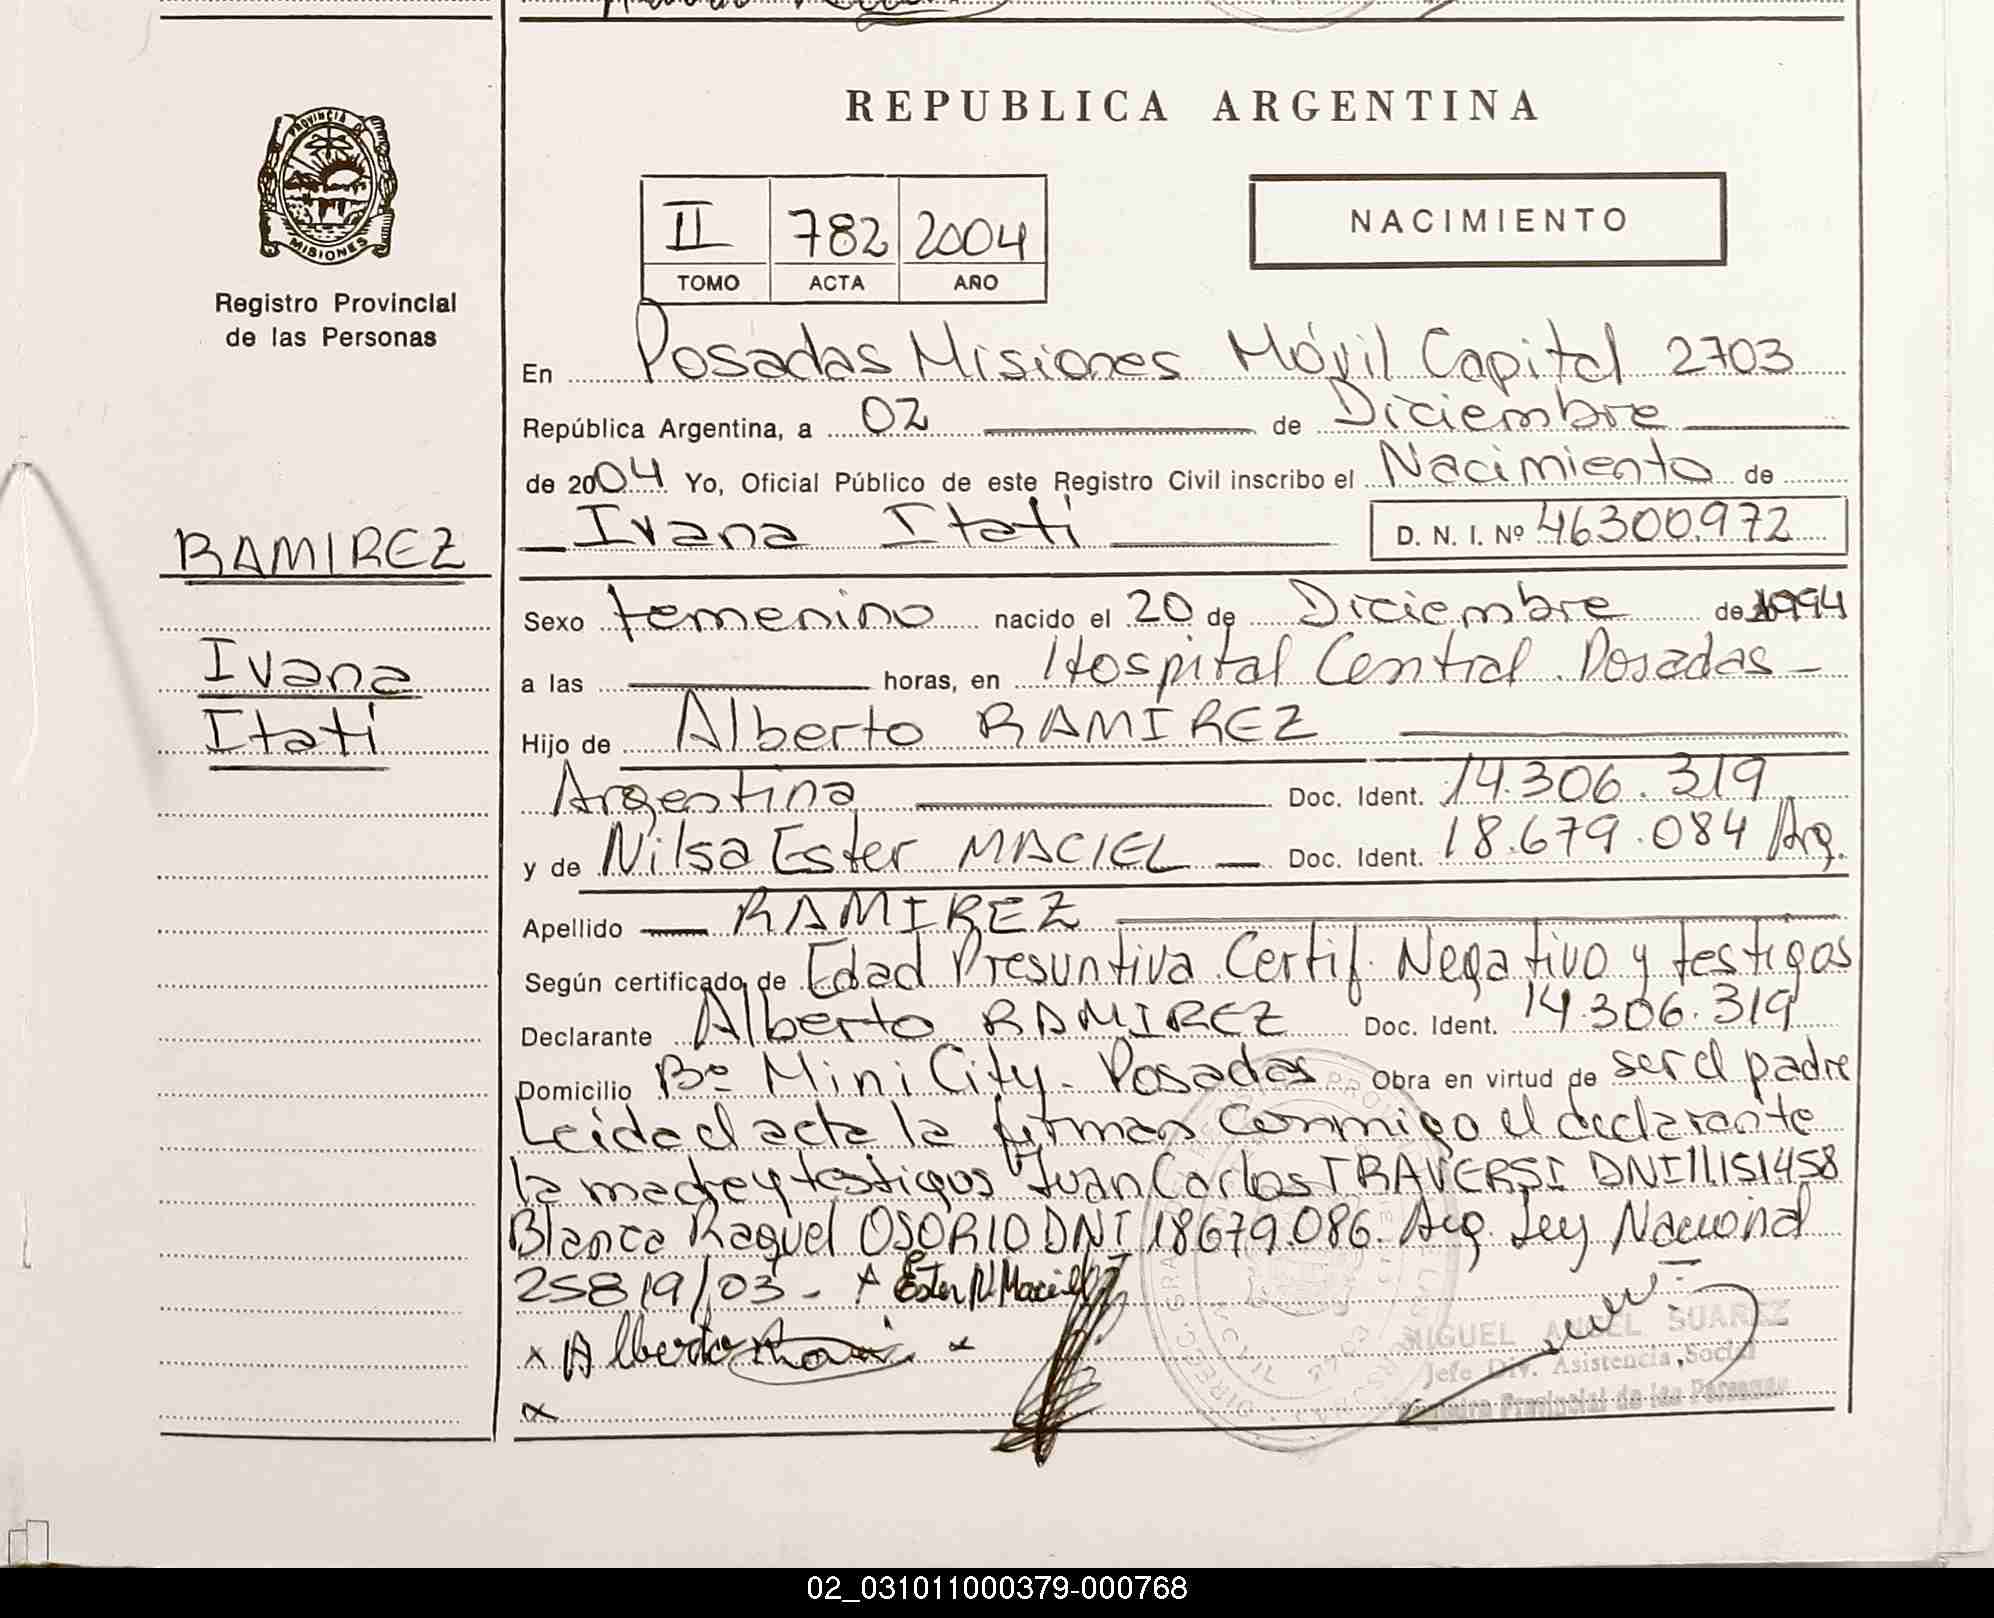 REPUBLICA ARGENTINA
PROVINCIA DE
MISIONES
Registro Provincial
de las Personas
II 782 2004
TOMO ACTA AÑO
NACIMIENTO
En Posadas Misiones Móvil Capital 2703
República Argentina, a 02 de Diciembre
de 2004 Yo, Oficial Público de este Registro Civil inscribo el Nacimiento de
Ivana Itatí D. N. I. Nº 46.300.972
RAMIREZ
Ivana
Itatí
Sexo femenino nacido el 20 de Diciembre de 1994
a las horas, en Hospital Central. Posadas -
Hijo de Alberto RAMIREZ
Argentina Doc. Ident. 14.306.319
y de Nilsa Ester MACIEL Doc. Ident. 18.679.084 Arg.
Apellido RAMIREZ
Según certificado de Edad Presuntiva Certif. Negativo y testigos
Declarante Alberto RAMIREZ Doc. Ident. 14.306.319
Domicilio Bº Mini City - Posadas Obra en virtud de ser el padre
Leida el acta la firman conmigo el declarante
la madre y testigos Juan Carlos TRAVERSI DNI 11.151.458
Blanca Raquel OSORIO DNI 18679.086. Arg. Ley Nacional
25819/03 - x Ester N Maciel
x Alberto x
x
MIGUEL ANGEL SUAREZ
Jefe Div. Asistencia Social
Registro Provincial de las Personas
02_031011000379-000768